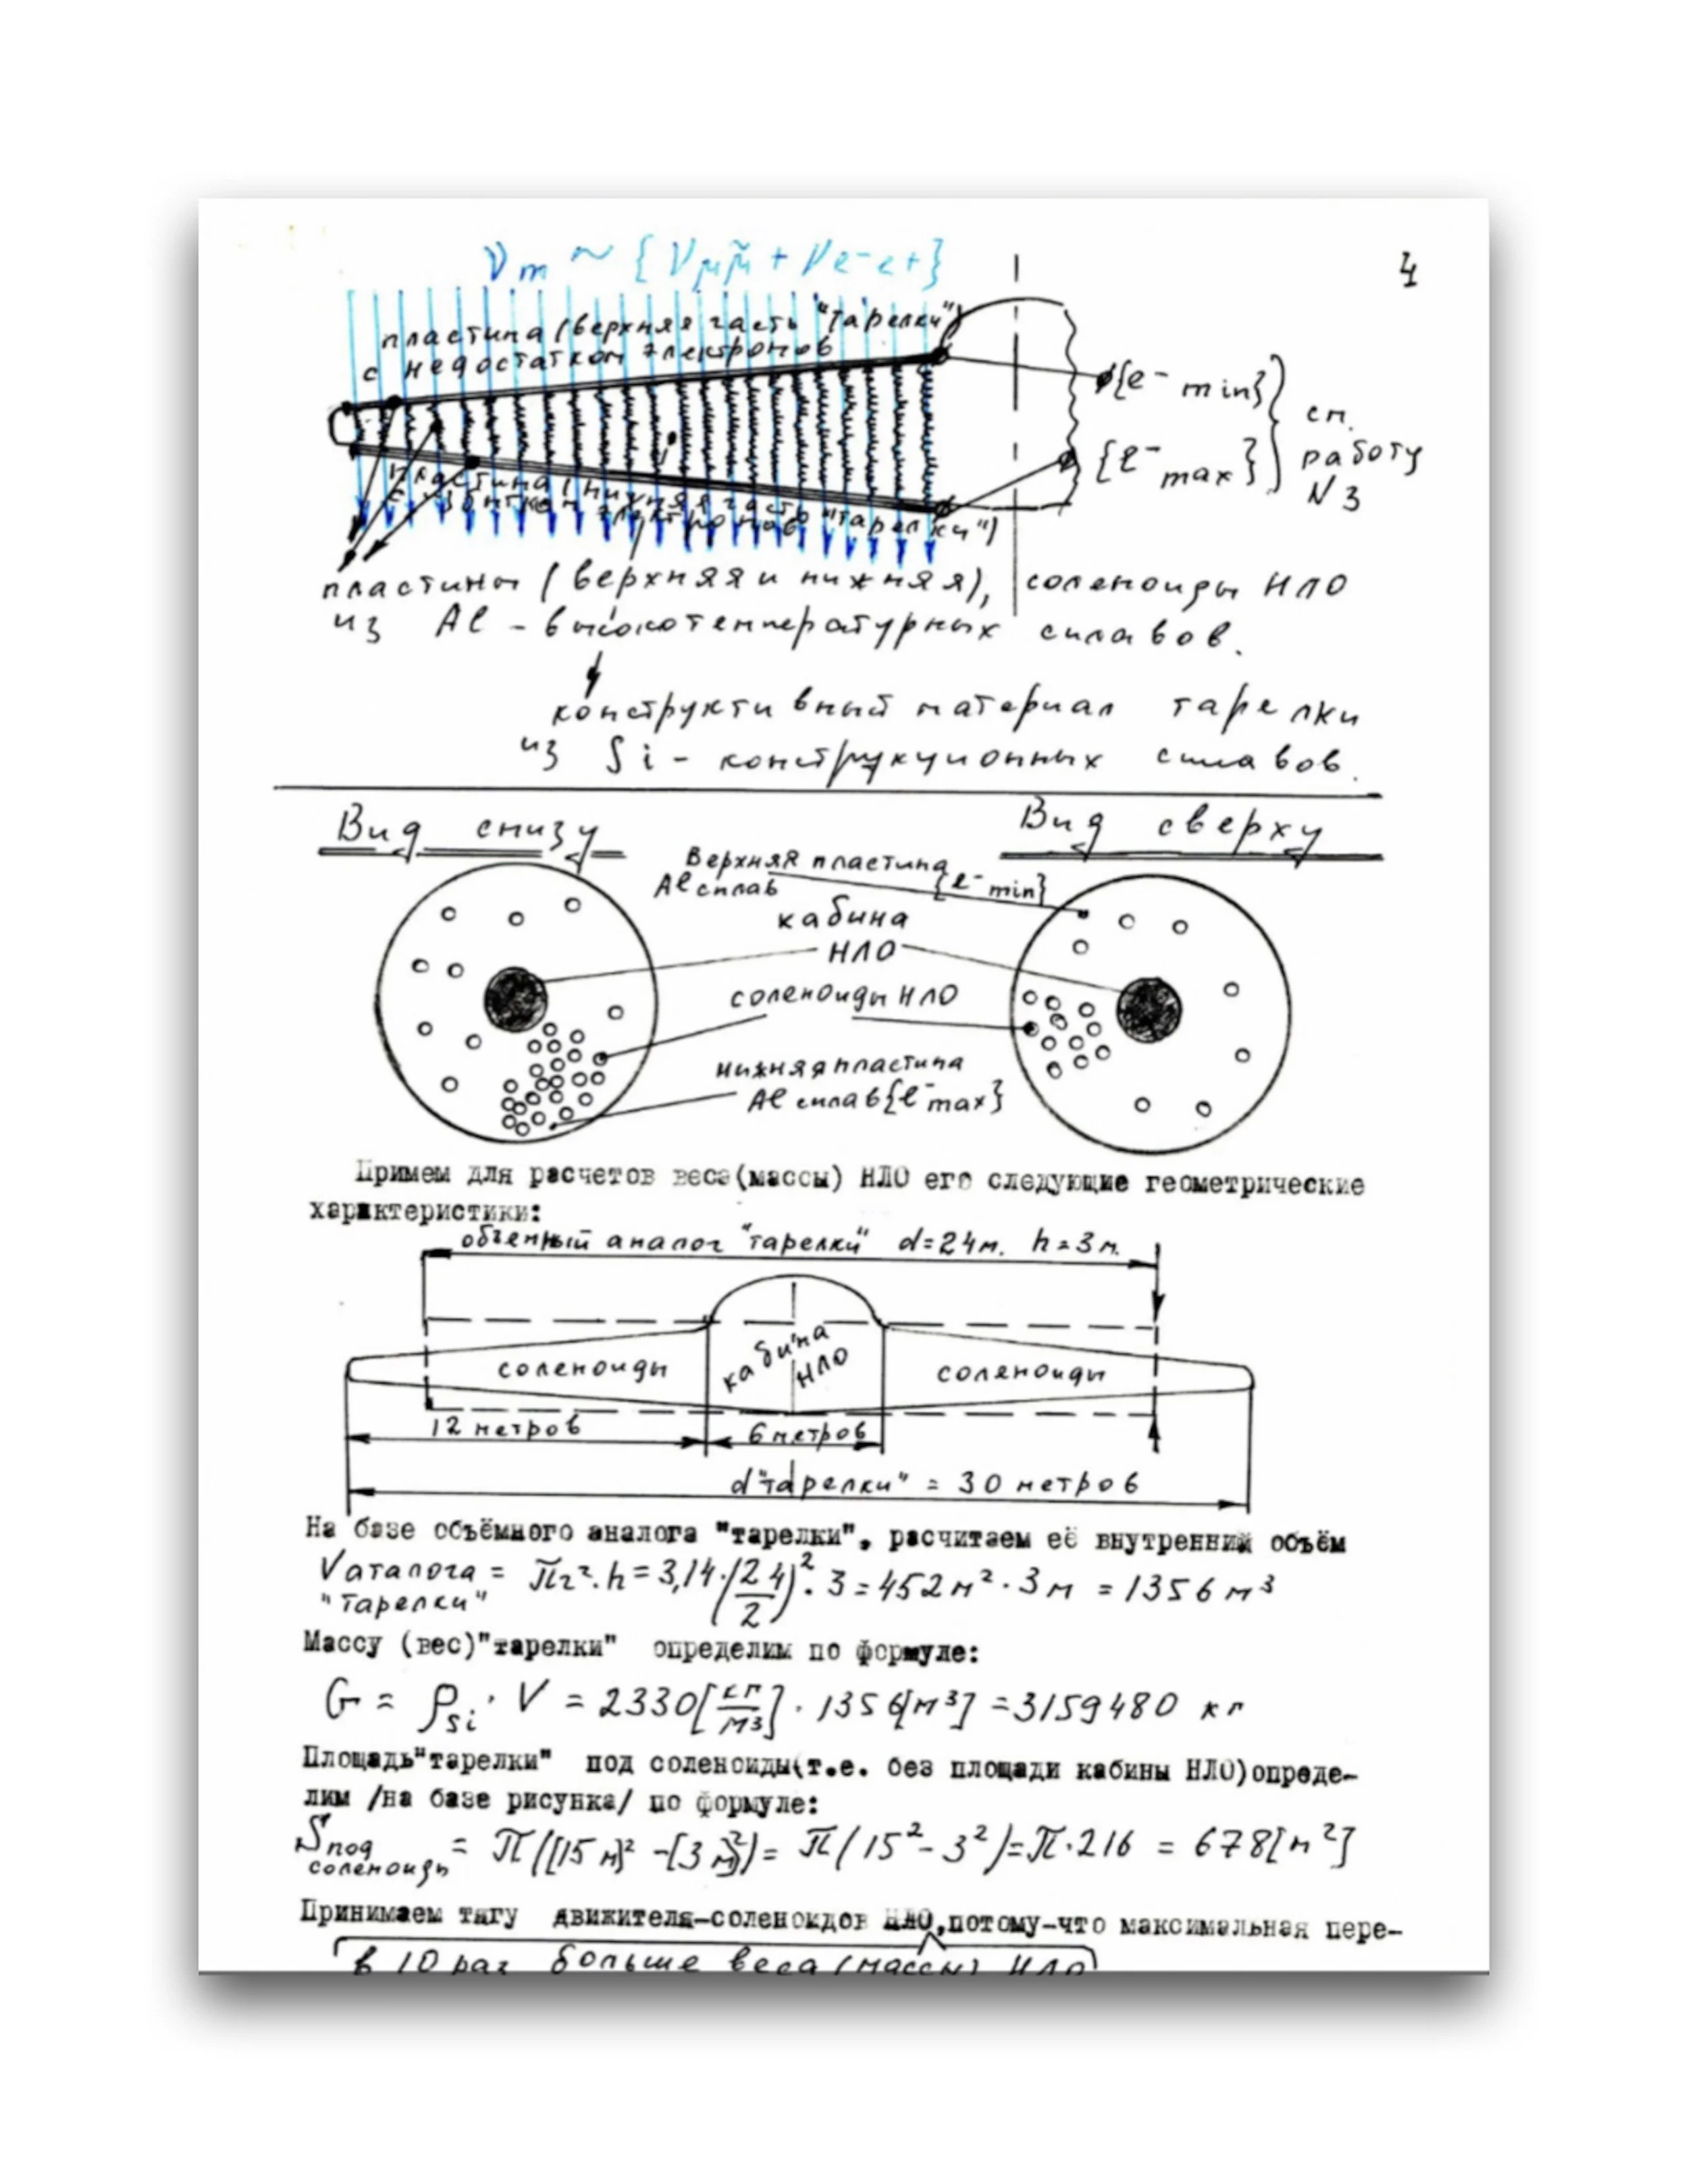 4
νm ~ {νμμ̃ + νe-e+}
пластина (верхняя часть "тарелки")
с недостатком электронов
{e- min}
{e- max}
см.
работу
N 3
пластина (нижняя часть "тарелки")
с избытком электронов
пластины (верхняя и нижняя), соленоиды НЛО
из Al - высокотемпературных сплавов.
конструктивный материал тарелки
из Si - конструкционных сплавов.
Вид снизу
Вид сверху
Верхняя пластина
Al сплав {e- min}
кабина
НЛО
соленоиды НЛО
нижняя пластина
Al сплав {e- max}
Примем для расчетов веса(массы) НЛО его следующие геометрические
характеристики:
объемный аналог "тарелки" d=24м. h=3м.
соленоиды
кабина
НЛО
соленоиды
12 метров
6 метров
d "тарелки" = 30 метров
На базе объёмного аналога "тарелки", расчитаем её внутренний объём
Vаталога = πr²·h = 3,14·(24/2)²·3 = 452м²·3м = 1356м³
"тарелки"
Массу (вес)"тарелки" определим по формуле:
G = ρsi · V = 2330[кг/м3] · 1356[м³] = 3159480 кг
Площадь"тарелки" под соленоиды(т.е. без площади кабины НЛО)опреде-
лим /на базе рисунка/ по формуле:
Sпод соленоиды = π([15м]² -[3м]²) = π(15²-3²)=π·216 = 678[м²]
Принимаем тягу движителя-соленоидов НЛО,потому-что максимальная пере-
в 10 раз больше веса (массы) НЛО